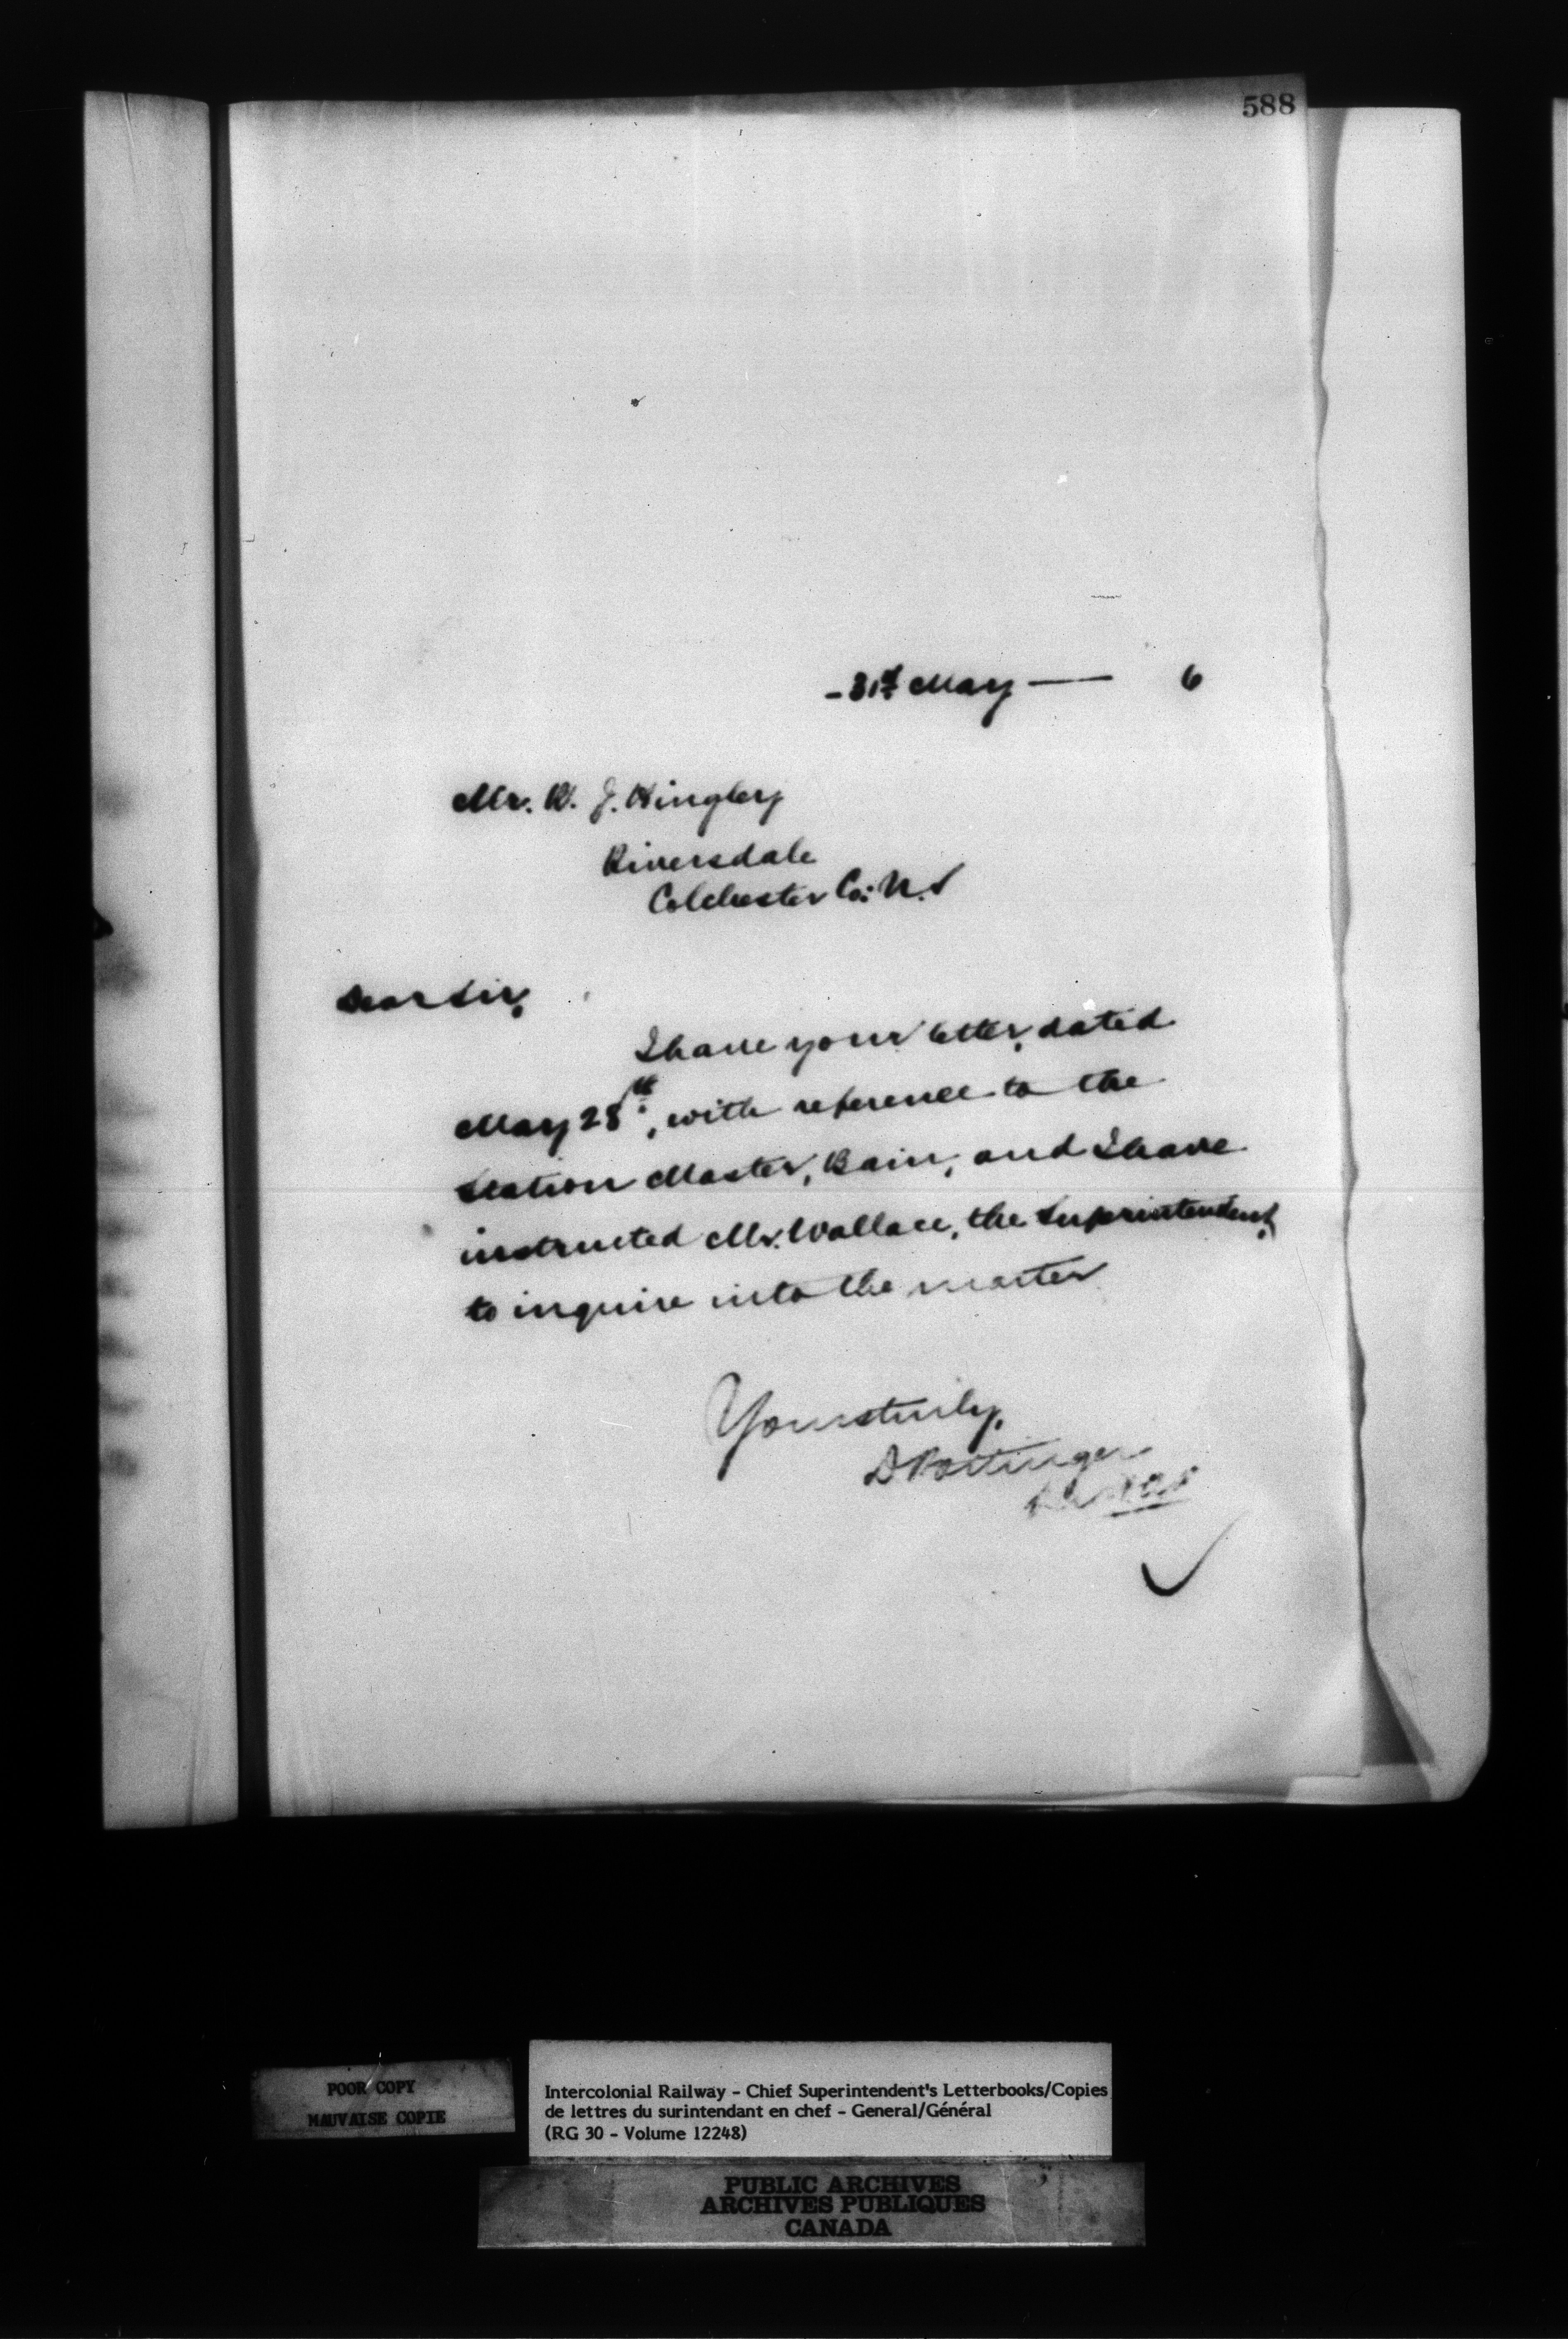 588
- 31st May — 6
Mr. R. J. Hingley
Riversdale
Colchester Co: N.S
Dear Sir,
I have your letter, dated
May 28th, with reference to the
Station Master, Bain, and I have
instructed Mr. Wallace, the Superintendent,
to inquire into the matter
Yours truly,
D Pottinger
POOR COPY
MAUVAISE COPIE
Intercolonial Railway - Chief Superintendent's Letterbooks/Copies
de lettres du surintendant en chef - General/Général
(RG 30 - Volume 12248)
PUBLIC ARCHIVES
ARCHIVES PUBLIQUES
CANADA